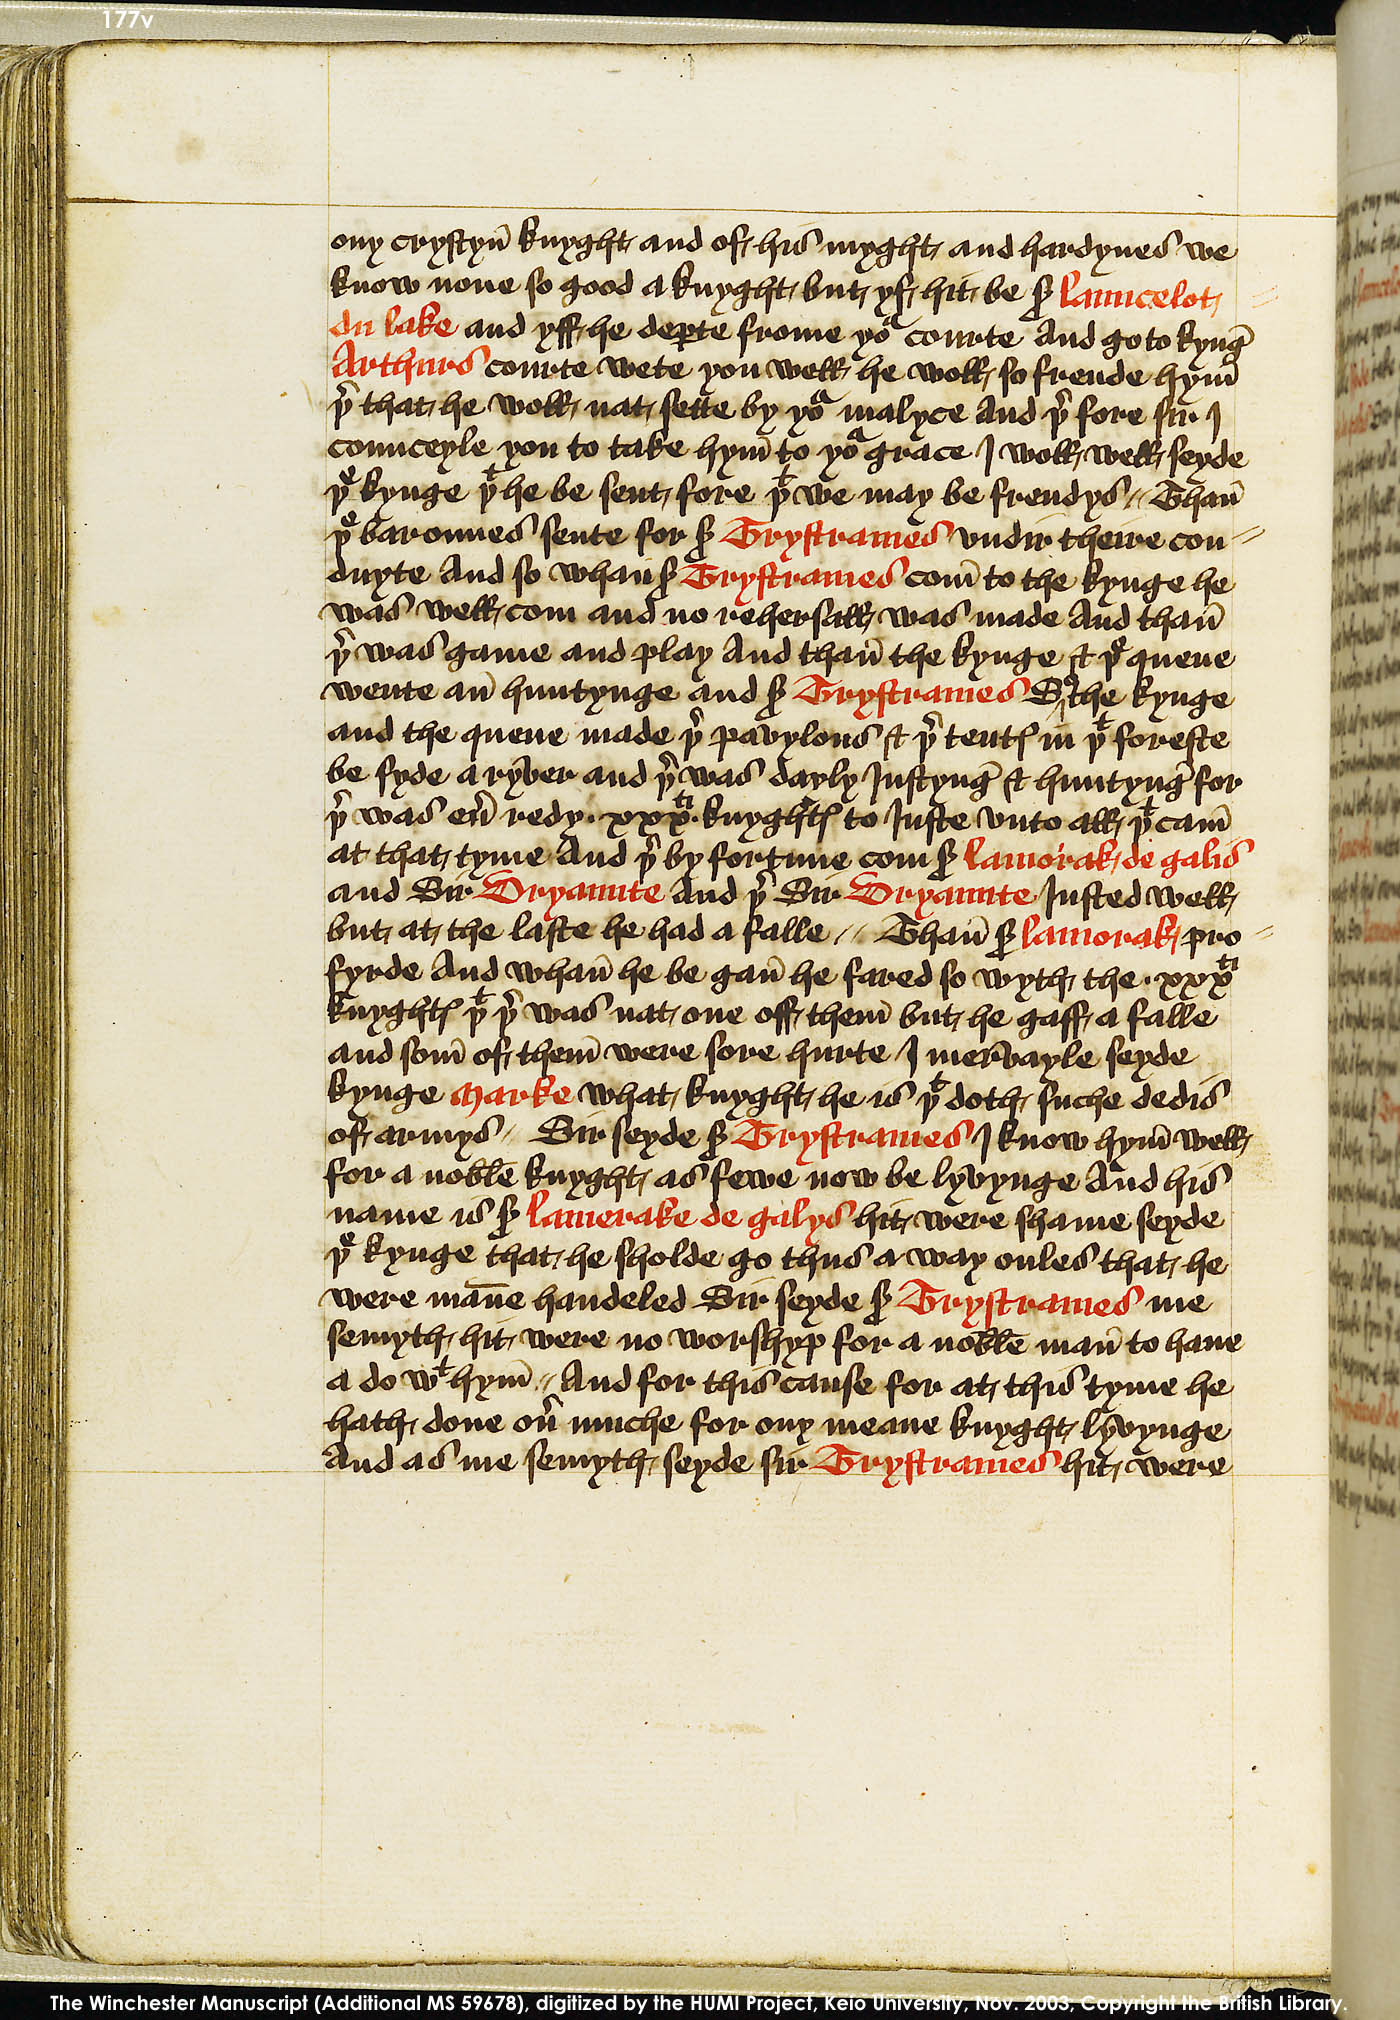 177v
ony crystyn̄ knyght and of his myght and hardynes we
know none so good a knyght but yf hit be sʳ launcelot
du lake and yff he deꝑte frome yoʳ courte And go to kynḡ
Arthurs courte wete you well he woll so frende hym̄
þʳ that he woll nat sette by yoʳ malyce And þʳ fore sir I
counceyle you to take hym̄ to yoʳ grace I woll well seyde
þᵉ kynge þᵗ he be sent fore þᵗ we may be frendys // Than̄
þᵉ barounes sente for sʳ Trystrames vndir theire con //
duyte And so whan̄ sʳ Trystrames com̄ to the kynge he
was well com and no rehersall was made And than̄
þʳ was game and play And than̄ the kynge & þᵉ quene
wente an̄ huntynge and sʳ Trystrames So the kynge
and the quene made þʳ pavylons & þʳ tentꝭ in þᵗ foreste
be syde a ryver and þʳ was dayly Iustynḡ & huntynḡ for
þʳ was eūʳ redy · xxxᵗⁱ · knyghtꝭ to Iuste vnto all þᵗ cam̄
at that tyme And þʳ by fortune com sʳ lamorak de galis
and Sir Dryaunte And þʳ Sir Dryaunte Iusted well
but at the laste he had a falle // Than̄ sʳ lamorak pro //
fyrde And whan̄ he be gan̄ he fared so wyth the · xxxᵗⁱ
knyghtꝭ þᵗ þʳ was nat one off them̄ but he gaff a falle
and som̄ of them̄ were sore hurte I mervayle seyde
kynge Marke what knyght he is þᵗ doth suche dedis
of armys / Sir seyde sʳ Trystrames I know hym̄ well
for a noble knyght as fewe now be lyvynge And his
name is sʳ lamerake de galys hit were shame seyde
þᵉ kynge that he sholde go thus a way onles that he
were mān̄e handeled Sir seyde sʳ Trystrames me
semyth hit were no worshyp for a noble man̄ to haue
a do wᵗ hym̄ // And for this cause for at this tyme he
hath done oūʳ muche for ony meane knyght lyvynge
And as me semyth seyde sir Trystrames hit were
The Winchester Manuscript (Additional MS 59678), digitized by the HUMI Project, Keio University, Nov. 2003, Copyright the British Library.